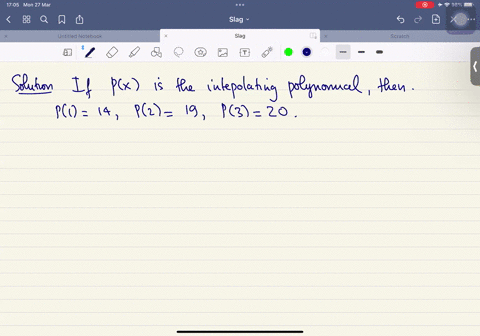 17:05 Mon 27 Mar
Slag
Untitled Notebook
Slag
Scratch
Solution If p(x) is the intepolating polynomial, then.
P(1) = 14, P(2) = 19, P(3) = 20.